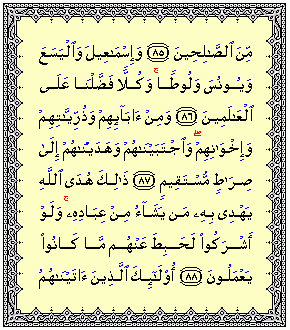 مِّنَ ٱلصَّـٰلِحِينَ ٨٥ وَإِسْمَـٰعِيلَ وَٱلْيَسَعَ
وَيُونُسَ وَلُوطًا ۚ وَكُلًّا فَضَّلْنَا عَلَى
ٱلْعَـٰلَمِينَ ٨٦ وَمِنْ ءَابَآئِهِمْ وَذُرِّيَّـٰتِهِمْ
وَإِخْوَٰنِهِمْ ۖ وَٱجْتَبَيْنَـٰهُمْ وَهَدَيْنَـٰهُمْ إِلَىٰ
صِرَٰطٍ مُّسْتَقِيمٍ ٨٧ ذَٰلِكَ هُدَى ٱللَّهِ
يَهْدِى بِهِۦ مَن يَشَآءُ مِنْ عِبَادِهِۦ ۚ وَلَوْ
أَشْرَكُوا۟ لَحَبِطَ عَنْهُم مَّا كَانُوا۟
يَعْمَلُونَ ٨٨ أُو۟لَـٰٓئِكَ ٱلَّذِينَ ءَاتَيْنَـٰهُمُ